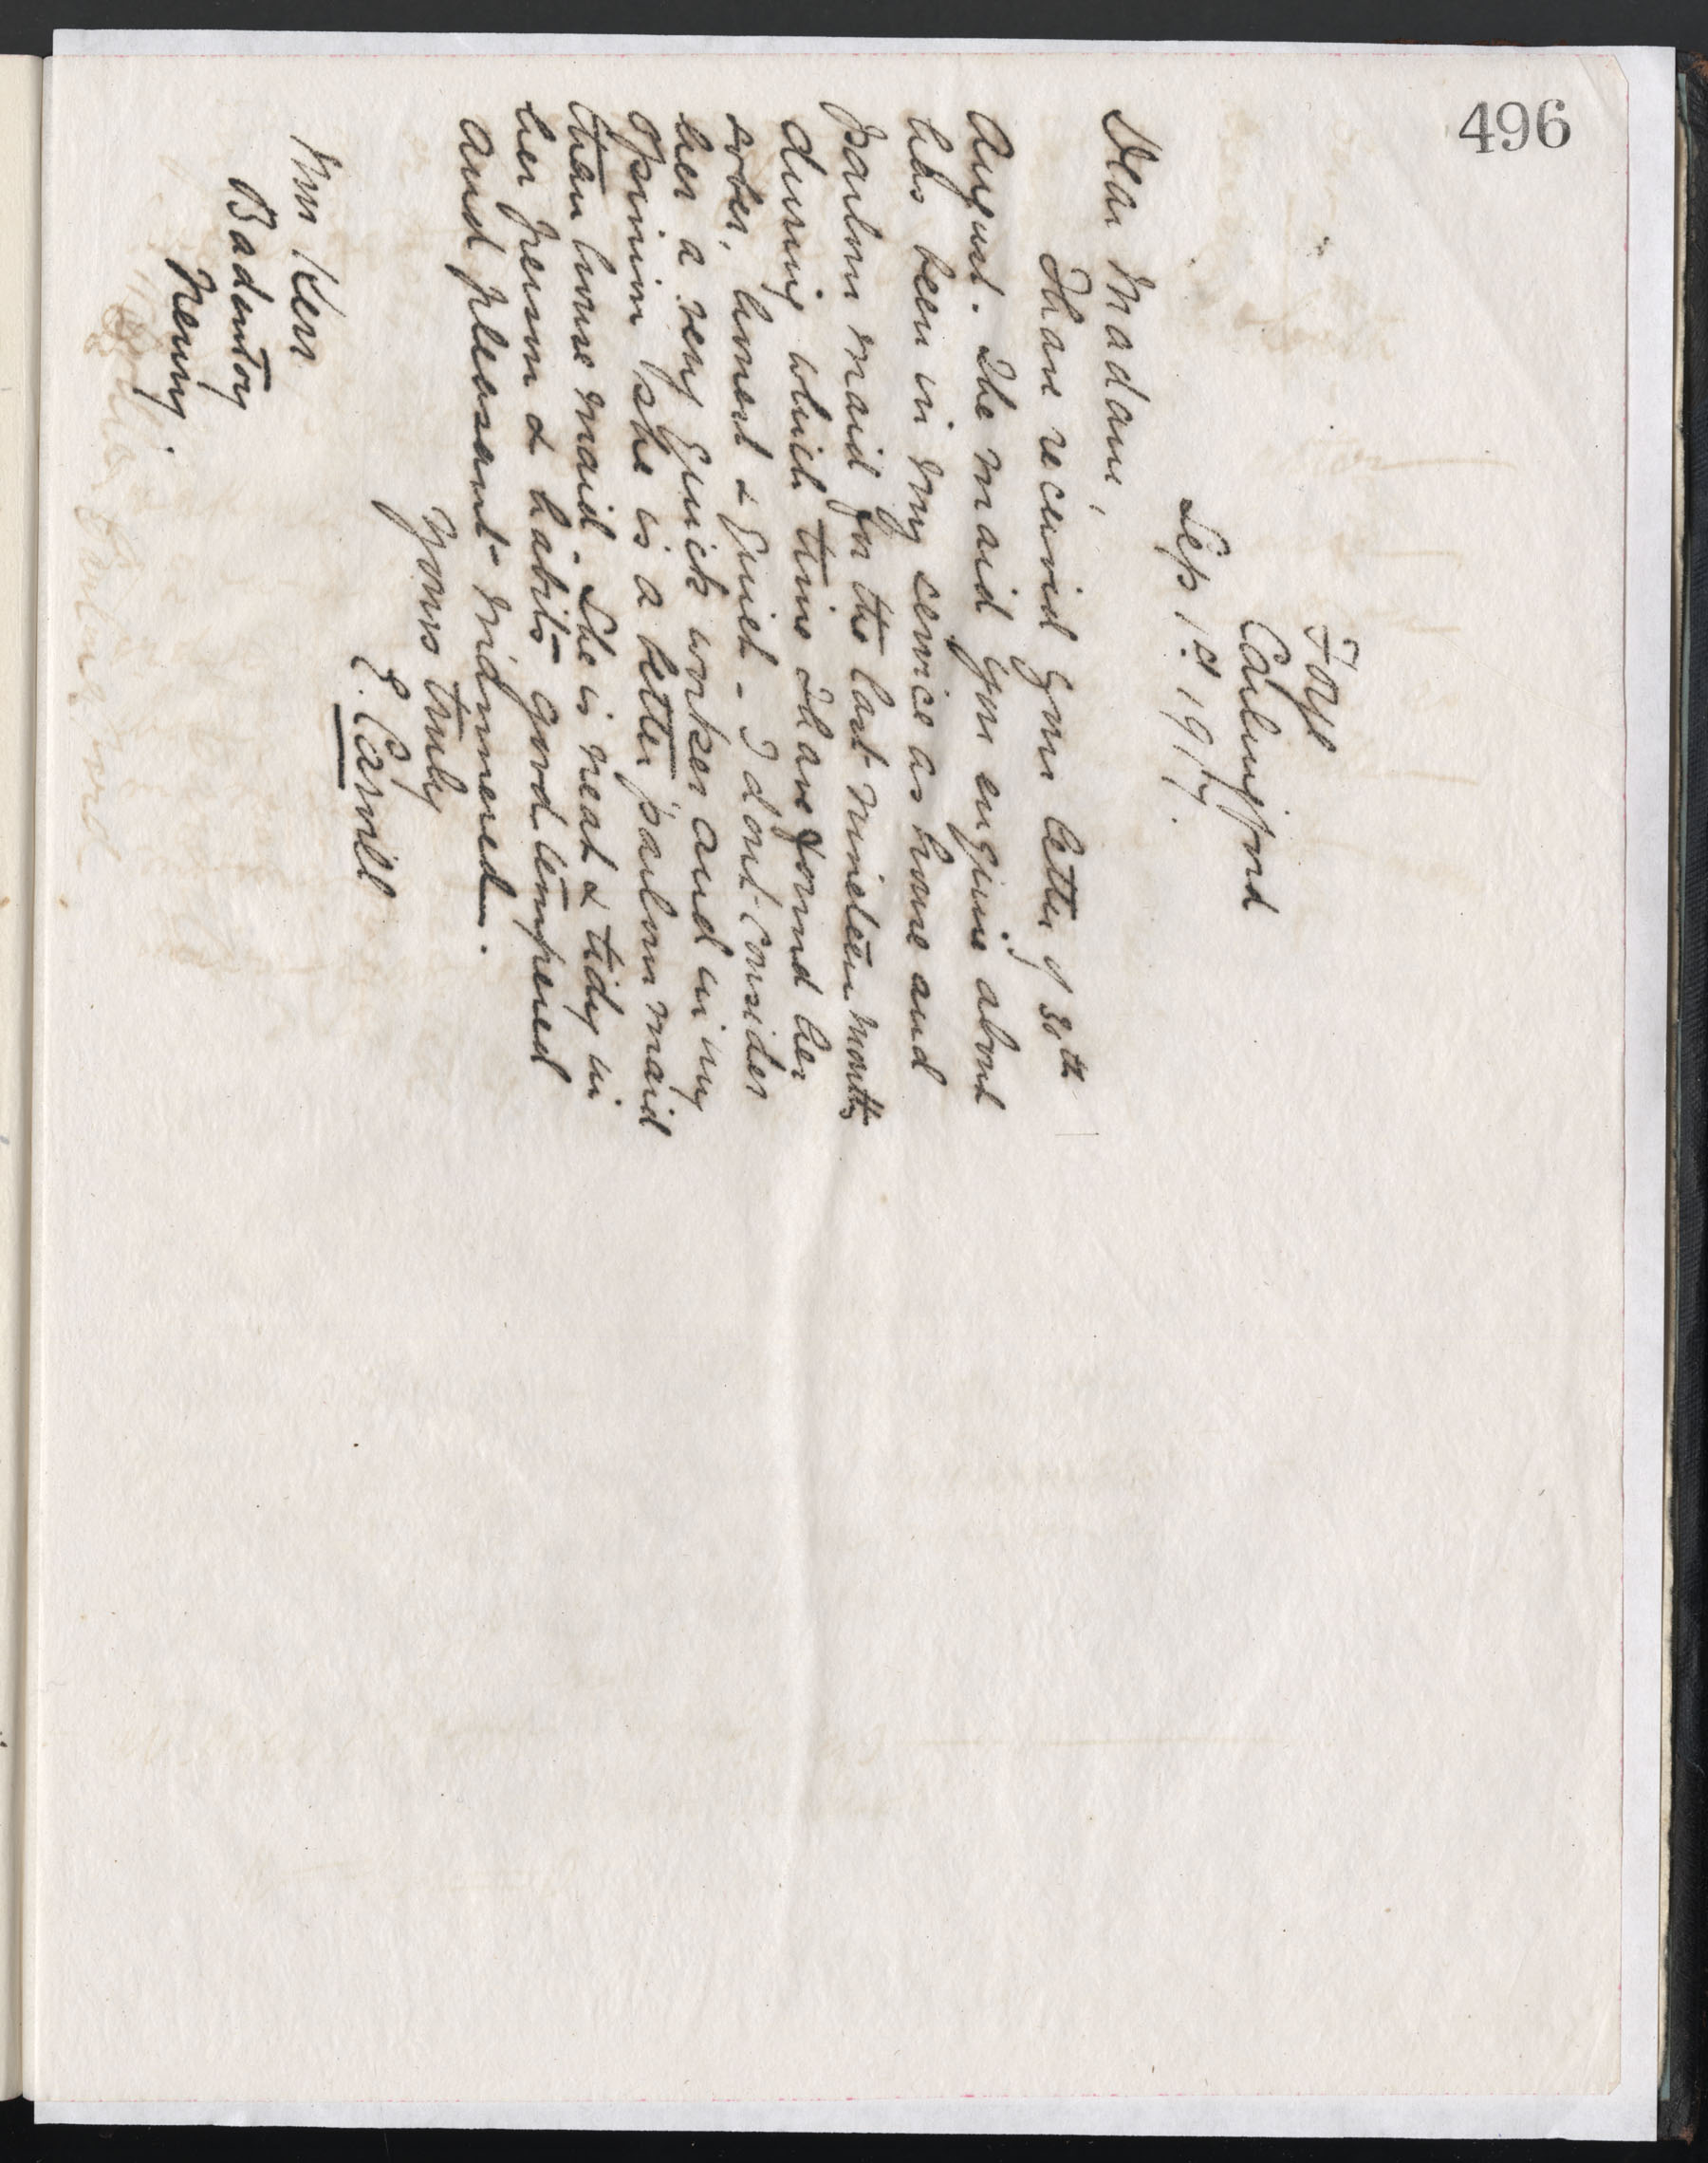 496
Foyl
Carlingford
Sep 1st 1917.
Dear Madam,
I have received your letter of 30th
August. The maid you enquire about
has been in my service as house and
parlour maid for the last nineteen months
during which time I have found her
sober, honest & quiet - I dont consider
her a very quick worker and in my
opinion she is a better parlour maid
than house maid. She is neat & tidy in
her person & habits good tempered
and pleasant mannered.
Yours truly
E. Carvill
Mrs Kerr
Newry.